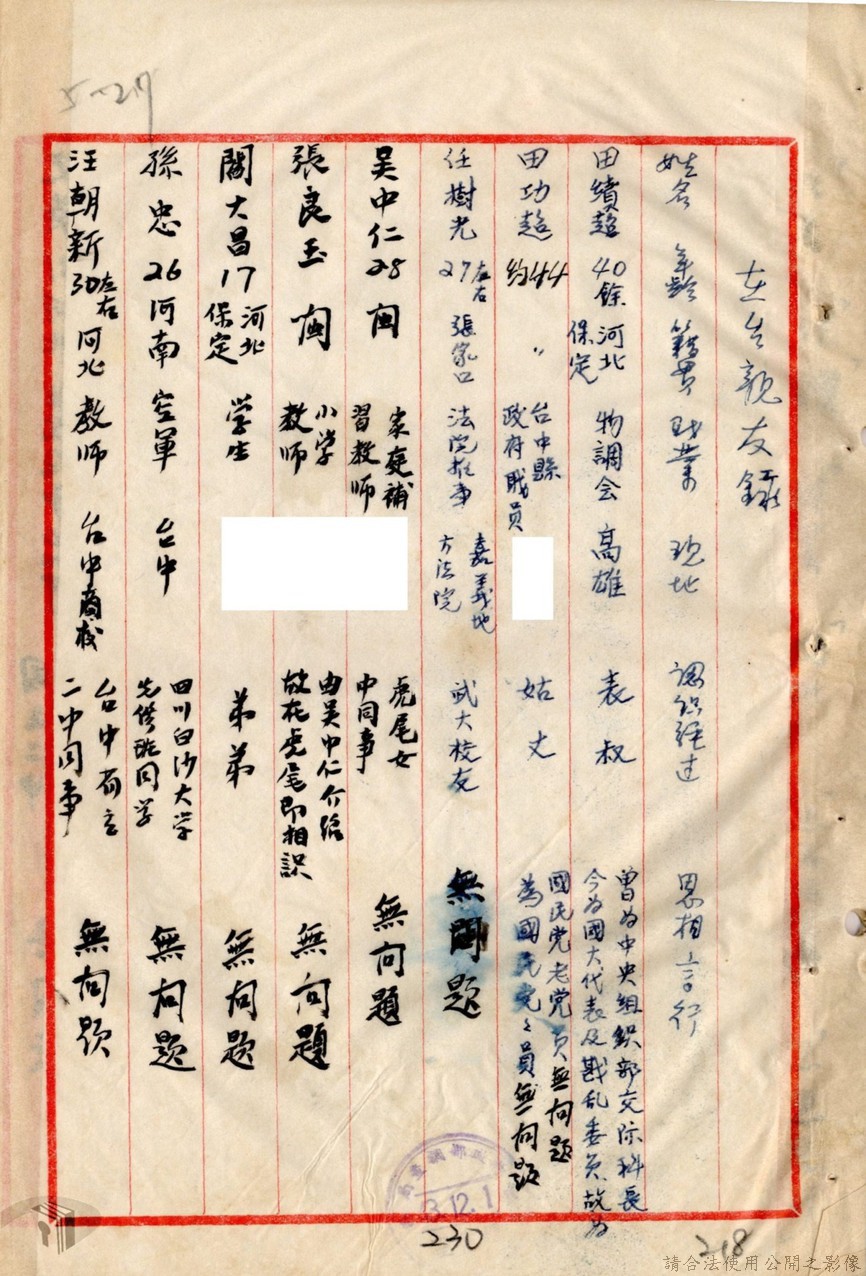 5-27
在台親友錄
姓名 年齡 籍貫 職業 現地 認識經過 思想言行
田績超 40餘 河北保定 物調会 高雄 表叔 曾为中央組織部交际科長今为國大代表及戡乱委员故为國民党老党员無问题
田功超 约44 〃 台中縣政府職員 姑丈 為國民党々員無问題
任樹光 27左右 張家口 法院推事 嘉義地方法院 武大校友 無問題
吴中仁 28 闽 家庭補習教师 虎尾女中同事 無问題
張良玉 閩 小学教师 由吴中仁介绍故在虎尾即相識 無问題
關大昌 17 河北保定 学生 弟弟 無问题
孫忠 26 河南 空軍 台中 四川白沙大学先修班同学 無问题
汪朝新 30左右 河北 教师 台中商校 台中市立二中同事 無问题
3.12.1
230
218
請合法使用公開之影像